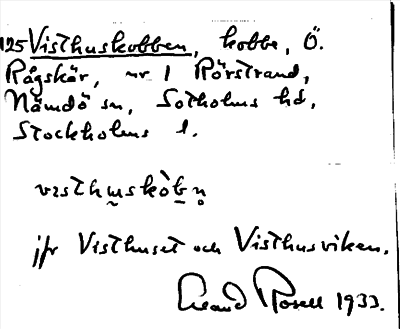 125 Visthuskobben, kobbe, Ö.
Rågskär, nr 1 Rörstrand,
Nämdö sn, Sotholms hd,
Stockholms l.
visthu̬skòb̲n̥
jfr Visthuset och Visthusviken.
Erland Rosell 1933.